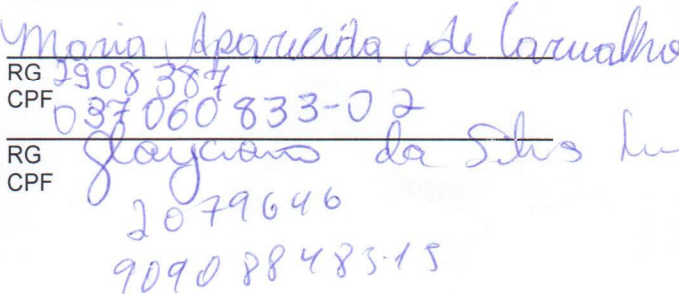 Maria Aparecida de Carvalho
RG 2908 387
CPF 037060833-02
RG Glayciano da Silva
CPF
2079646
909088483-15